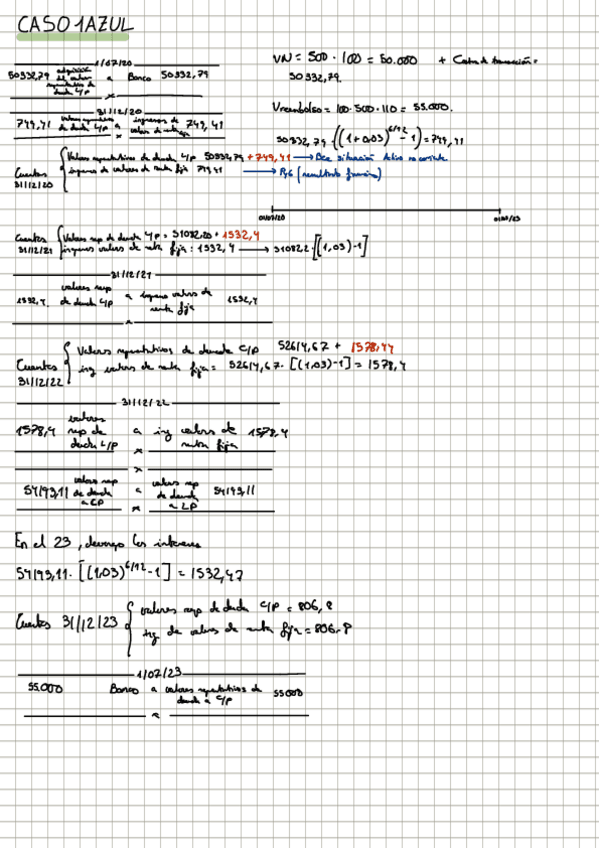 CASO 1 AZUL
1/07/20
50.332,79 adquisición de valores representativos de deuda L/P a Banco 50.332,79
VN = 500 · 100 = 50.000 + Costes de transacción =
50.332,79.
Vreembolso = 100 · 500 · 110 = 55.000.
31/12/20
749,41 Valores representativos de deuda L/P a ingresos de valores de 749,41
50.332,79 · ((1+0,03)^6/12 - 1) = 749,41
Cuentas 31/12/20
Valores representativos de deuda L/P 50.332,79 + 749,41 → Bce situación Activo no corriente
ingresos de valores de renta fija 749,41 → PyG (resultado financiero)
01/07/20
Cuentas 31/12/21
Valores rep de deuda L/P = 51082,20 + 1532,4
ingresos valores de renta fija: 1532,4 → 51082,2 · [(1,03) - 1]
31/12/21
1532,4. valores rep de deuda L/P a ingresos valores de renta fija 1532,4
Cuentas 31/12/22
Valores representativos de deuda C/P 52614,67 + 1578,44
ing valores de renta fija = 52614,67 · [(1,03) - 1] = 1578,4
31/12/22
1578,4 valores rep de deuda L/P a ing valores de renta fija 1578,4
54193,11 valores rep de deuda a CP a valores rep de deuda a LP 54193,11
En el 23, devengo los intereses
54193,11 · [(1,03)^6/12 - 1] = 1532,47
Cuentas 31/12/23
valores rep de deuda C/P = 806,8
ing de valores de renta fija = 806,8
1/07/23
55.000 Banco a valores representativos de deuda a C/P 55000